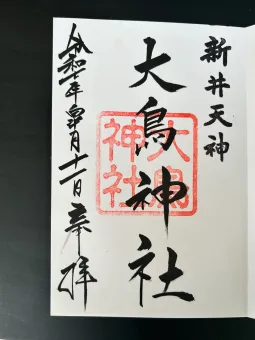 新井天神
大鳥神社
大鳥神社
令和七年四月十一日 奉拝